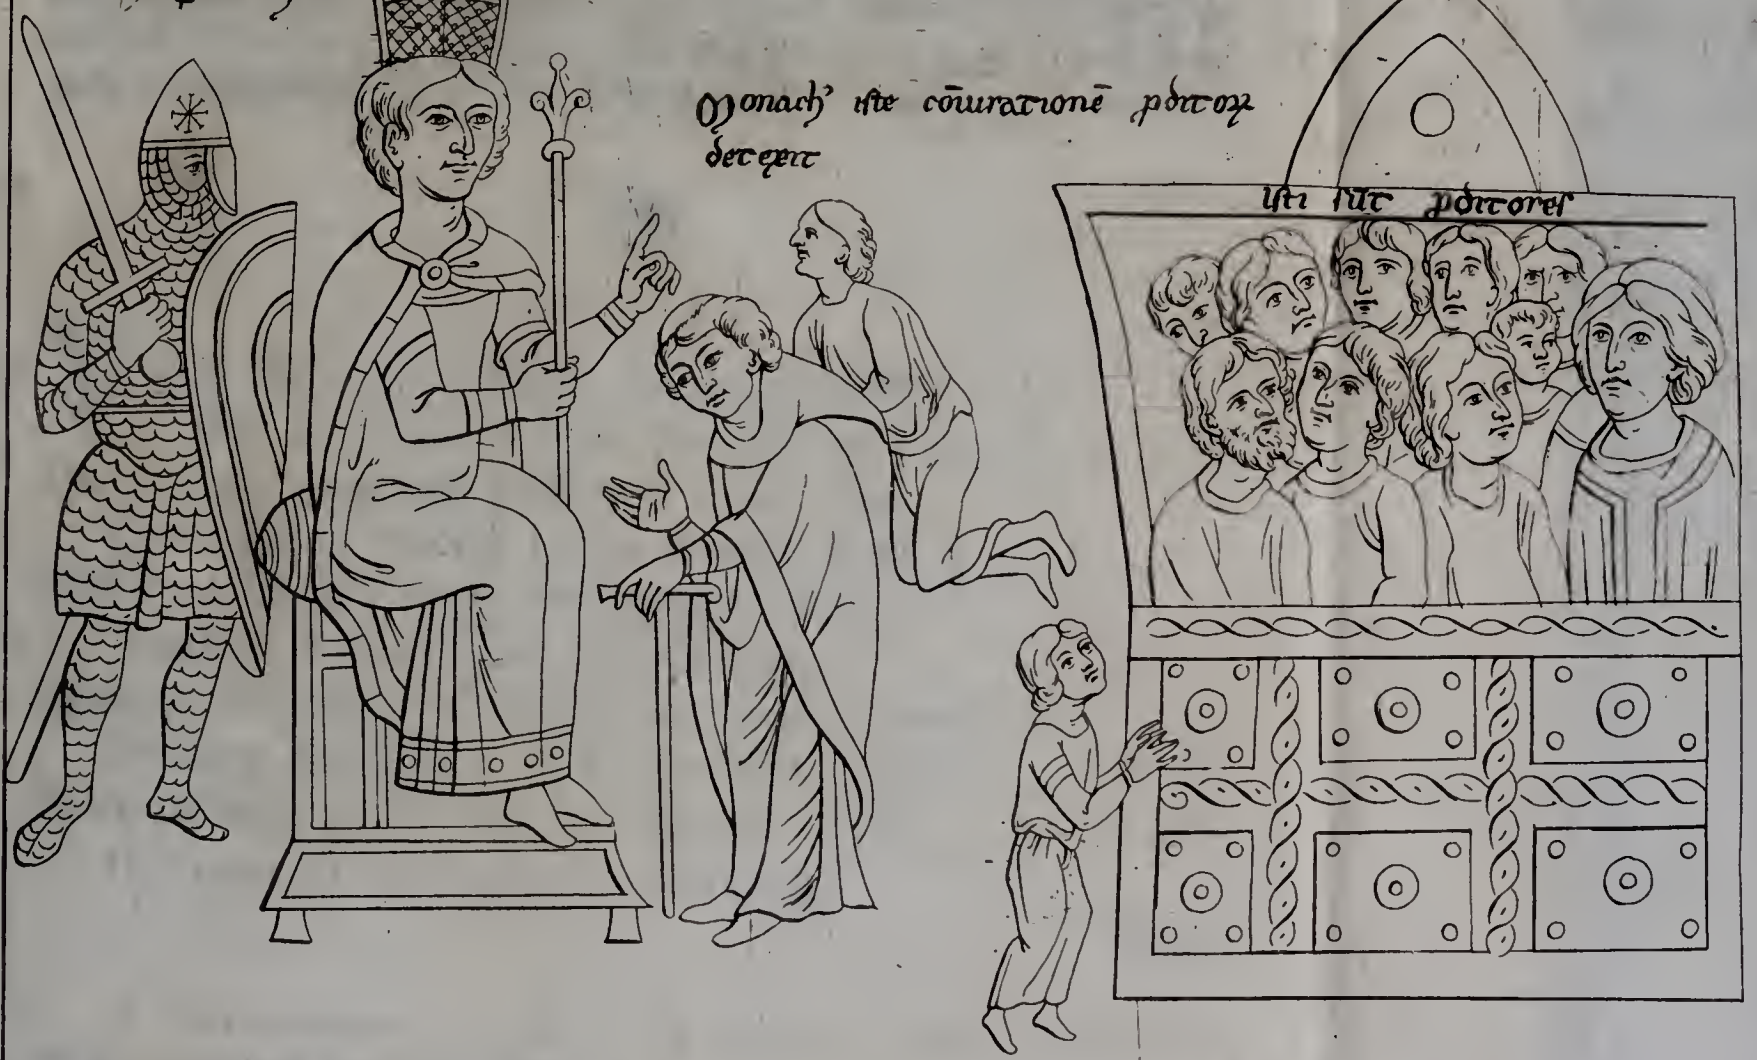 Monach' iste cōiurationē ꝓditoꝝ
detexit
isti sūt ꝓditores